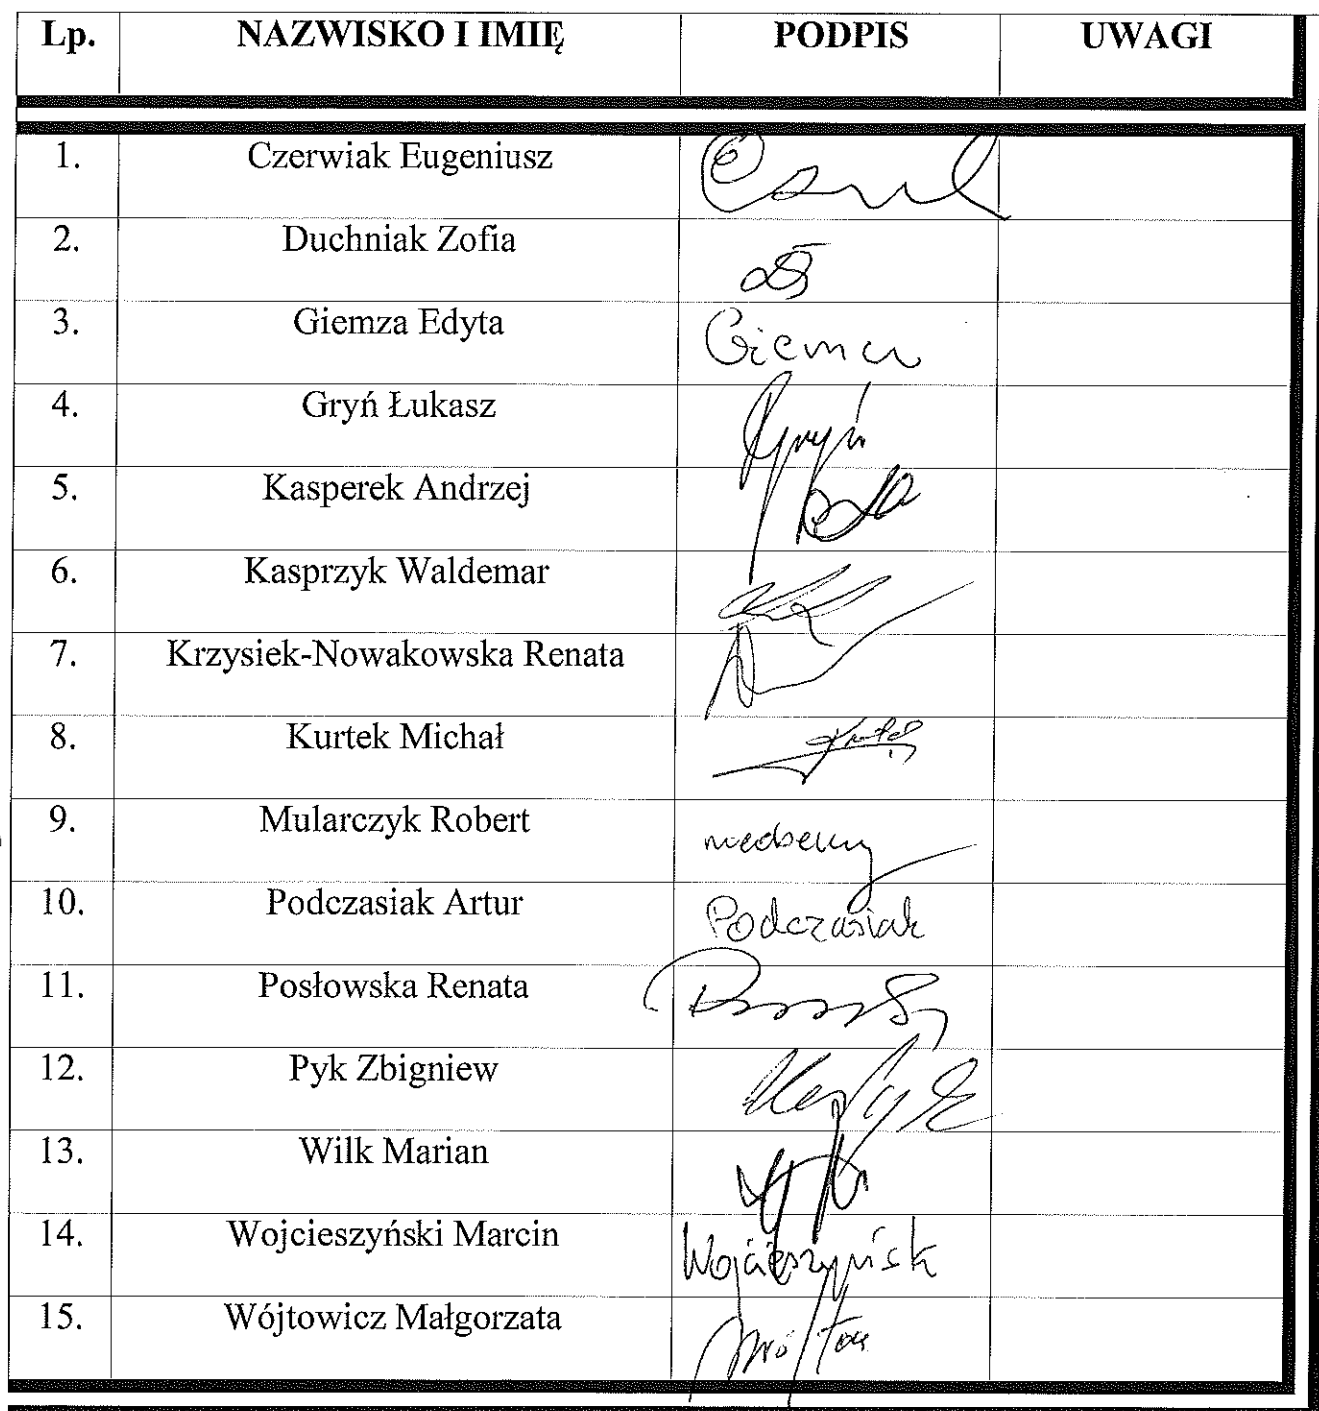 Lp. NAZWISKO I IMIĘ PODPIS UWAGI
1. Czerwiak Eugeniusz
2. Duchniak Zofia
3. Giemza Edyta Giemza
4. Gryń Łukasz Gryń
5. Kasperek Andrzej
6. Kasprzyk Waldemar
7. Krzysiek-Nowakowska Renata
8. Kurtek Michał
9. Mularczyk Robert nieobecny
10. Podczasiak Artur Podczasiak
11. Posłowska Renata
12. Pyk Zbigniew
13. Wilk Marian
14. Wojcieszyński Marcin Wojcieszyńsk
15. Wójtowicz Małgorzata